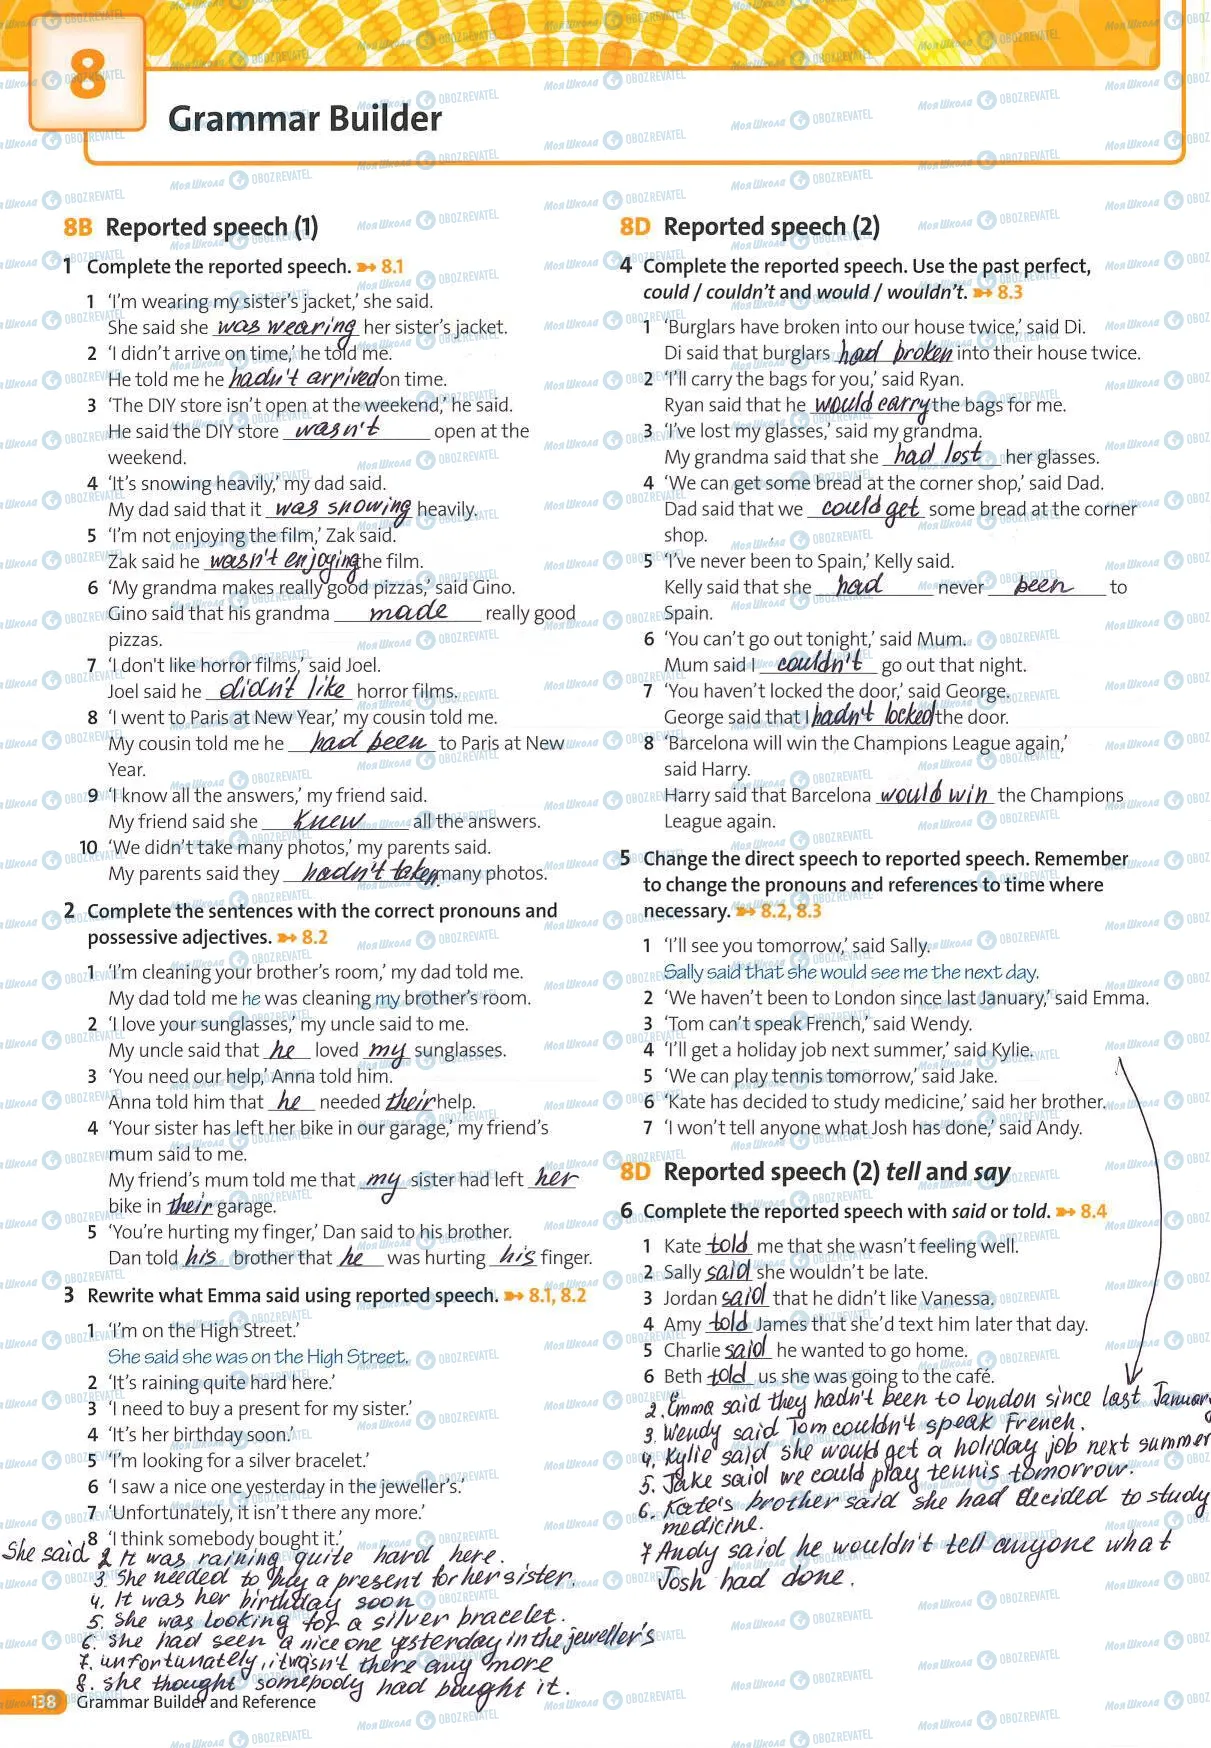 8
Grammar Builder
8B Reported speech (1)
1 Complete the reported speech. ➽ 8.1
1 ‘I’m wearing my sister’s jacket,’ she said.
She said she was wearing her sister’s jacket.
2 ‘I didn’t arrive on time,’ he told me.
He told me he hadn't arrived on time.
3 ‘The DIY store isn’t open at the weekend,’ he said.
He said the DIY store wasn't open at the
weekend.
4 ‘It’s snowing heavily,’ my dad said.
My dad said that it was snowing heavily.
5 ‘I’m not enjoying the film,’ Zak said.
Zak said he wasn't enjoying the film.
6 ‘My grandma makes really good pizzas,’ said Gino.
Gino said that his grandma made really good
pizzas.
7 ‘I don't like horror films,’ said Joel.
Joel said he didn't like horror films.
8 ‘I went to Paris at New Year,’ my cousin told me.
My cousin told me he had been to Paris at New
Year.
9 ‘I know all the answers,’ my friend said.
My friend said she knew all the answers.
10 ‘We didn’t take many photos,’ my parents said.
My parents said they hadn't taken many photos.
2 Complete the sentences with the correct pronouns and
possessive adjectives. ➽ 8.2
1 ‘I’m cleaning your brother’s room,’ my dad told me.
My dad told me he was cleaning my brother’s room.
2 ‘I love your sunglasses,’ my uncle said to me.
My uncle said that he loved my sunglasses.
3 ‘You need our help,’ Anna told him.
Anna told him that he needed their help.
4 ‘Your sister has left her bike in our garage,’ my friend’s
mum said to me.
My friend’s mum told me that my sister had left her
bike in their garage.
5 ‘You’re hurting my finger,’ Dan said to his brother.
Dan told his brother that he was hurting his finger.
3 Rewrite what Emma said using reported speech. ➽ 8.1, 8.2
1 ‘I’m on the High Street.’
She said she was on the High Street.
2 ‘It’s raining quite hard here.’
3 ‘I need to buy a present for my sister.’
4 ‘It’s her birthday soon.’
5 ‘I’m looking for a silver bracelet.’
6 ‘I saw a nice one yesterday in the jeweller’s.’
7 ‘Unfortunately, it isn’t there any more.’
8 ‘I think somebody bought it.’
She said 2 It was raining quite hard here.
3. She needed to buy a present for her sister.
4. It was her birthday soon
5. she was looking for a silver bracelet.
6. she had seen a nice one yesterday in the jeweller's
7. unfortunately, it wasn't there any more
8. she thought somebody had bought it.
138 Grammar Builder and Reference
8D Reported speech (2)
4 Complete the reported speech. Use the past perfect,
could / couldn’t and would / wouldn’t. ➽ 8.3
1 ‘Burglars have broken into our house twice,’ said Di.
Di said that burglars had broken into their house twice.
2 ‘I’ll carry the bags for you,’ said Ryan.
Ryan said that he would carry the bags for me.
3 ‘I’ve lost my glasses,’ said my grandma.
My grandma said that she had lost her glasses.
4 ‘We can get some bread at the corner shop,’ said Dad.
Dad said that we could get some bread at the corner
shop.
5 ‘I’ve never been to Spain,’ Kelly said.
Kelly said that she had never been to
Spain.
6 ‘You can’t go out tonight,’ said Mum.
Mum said I couldn't go out that night.
7 ‘You haven’t locked the door,’ said George.
George said that I hadn't locked the door.
8 ‘Barcelona will win the Champions League again,’
said Harry.
Harry said that Barcelona would win the Champions
League again.
5 Change the direct speech to reported speech. Remember
to change the pronouns and references to time where
necessary. ➽ 8.2, 8.3
1 ‘I’ll see you tomorrow,’ said Sally.
Sally said that she would see me the next day.
2 ‘We haven’t been to London since last January,’ said Emma.
3 ‘Tom can’t speak French,’ said Wendy.
4 ‘I’ll get a holiday job next summer,’ said Kylie.
5 ‘We can play tennis tomorrow,’ said Jake.
6 ‘Kate has decided to study medicine,’ said her brother.
7 ‘I won’t tell anyone what Josh has done,’ said Andy.
8D Reported speech (2) tell and say
6 Complete the reported speech with said or told. ➽ 8.4
1 Kate told me that she wasn’t feeling well.
2 Sally said she wouldn’t be late.
3 Jordan said that he didn’t like Vanessa.
4 Amy told James that she’d text him later that day.
5 Charlie said he wanted to go home.
6 Beth told us she was going to the café.
2. Emma said they hadn't been to London since last January
3. Wendy said Tom couldn't speak French.
4. Kylie said she would get a holiday job next summer
5. Jake said we could play tennis tomorrow.
6. Kate's brother said she had decided to study
medicine.
7 Andy said he wouldn't tell anyone what
Josh had done.
Моя Школа OBOZREVATEL